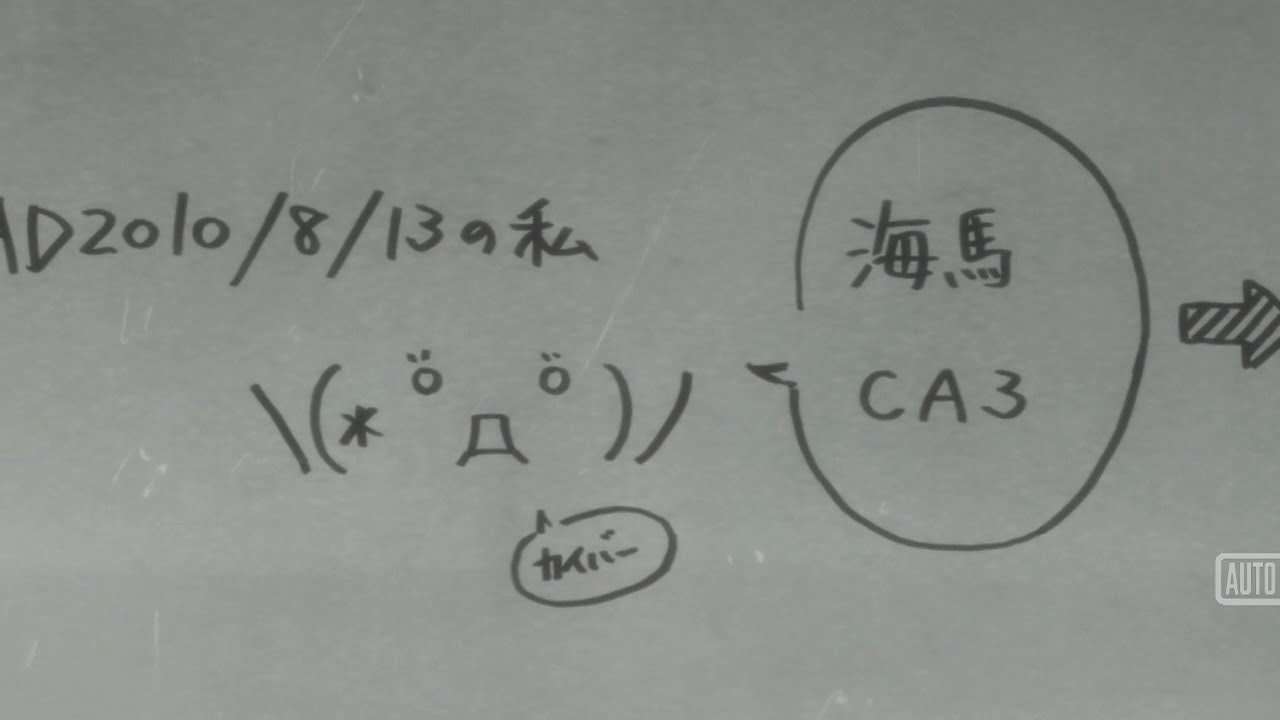 AD2010/8/13の私
\(* ゚Д゚)/
カイバー
海馬
CA3
AUTO